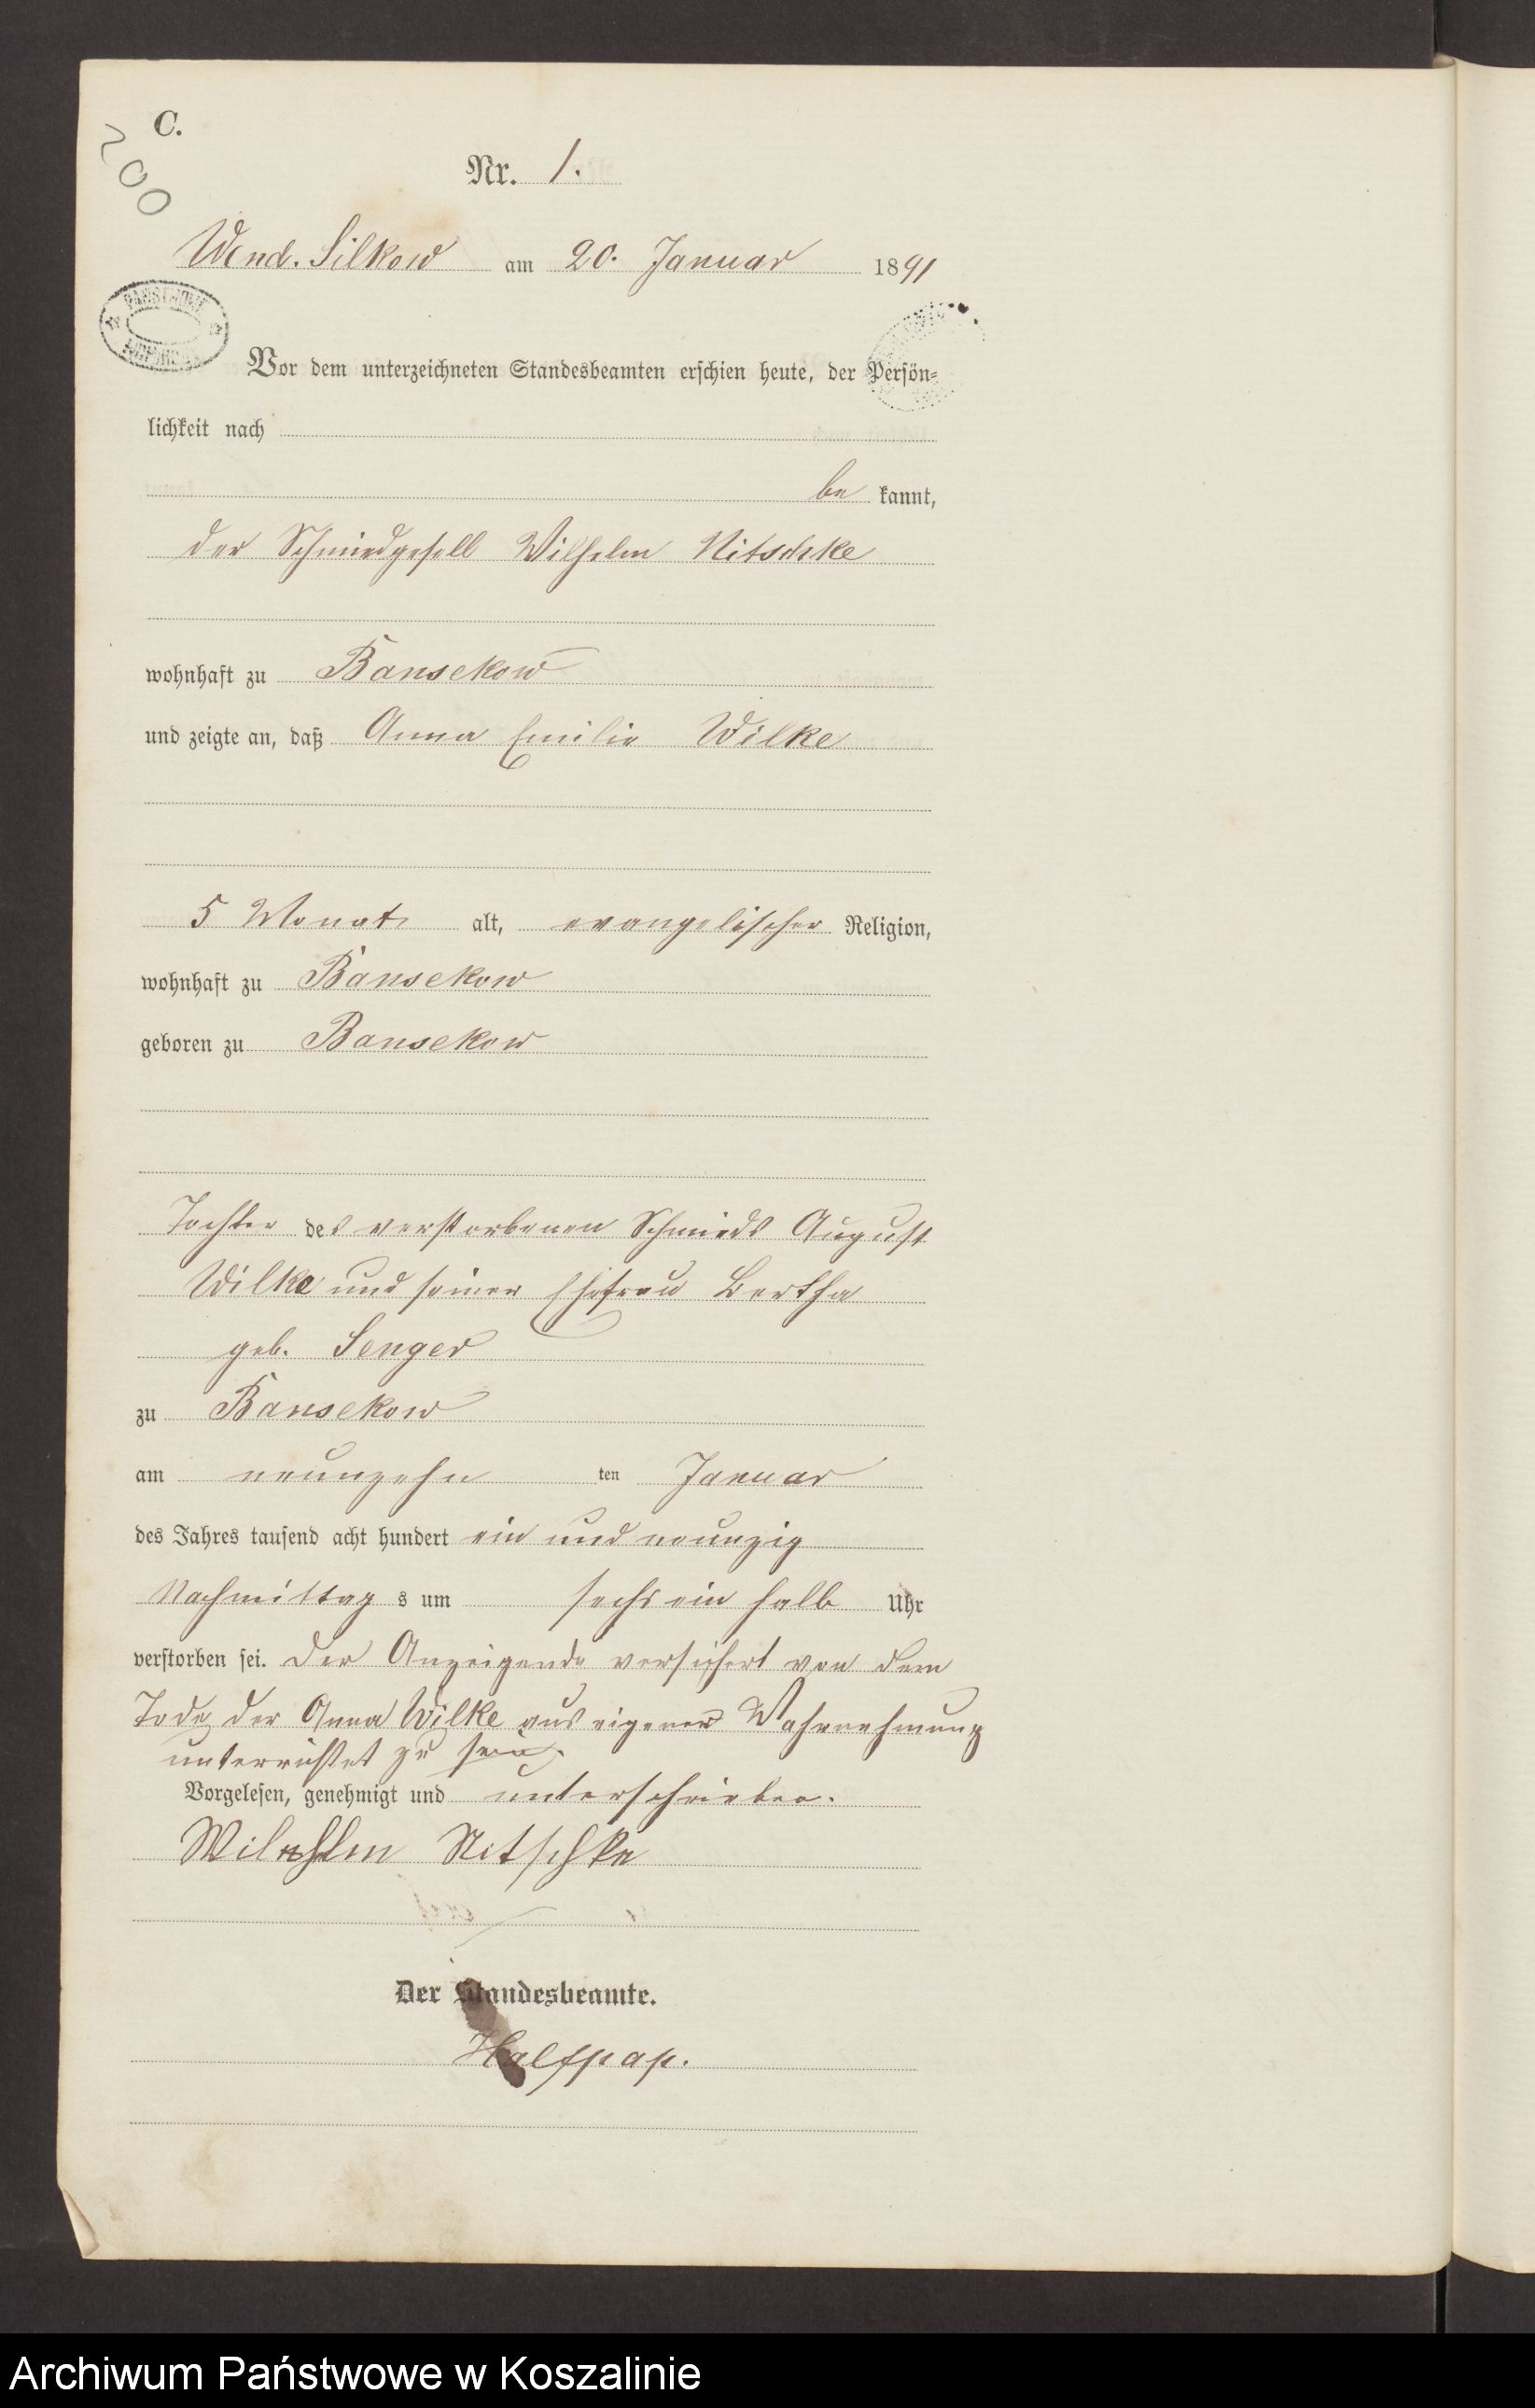 C.
200
Nr. 1.
Wend. Silkow am 20. Januar 1891
Vor dem unterzeichneten Standesbeamten erschien heute, der Persön-
lichkeit nach
be kannt,
der Schmiedgesell Wilhelm Nitschke
wohnhaft zu Bansekow
und zeigte an, daß Anna Emilie Wilke
5 Monate alt, evangelischer Religion,
wohnhaft zu Bansekow
geboren zu Bansekow
Tochter des verstorbenen Schmieds August
Wilke und seiner Ehefrau Bertha
geb. Senger
zu Bansekow
am neunzehn ten Januar
des Jahres tausend acht hundert ein und neunzig
Nachmittag s um sechs ein halb Uhr
verstorben sei. Der Anzeigende versichert von dem
Tode der Anna Wilke aus eigener Wahrnehmung
unterrichtet zu sein.
Vorgelesen, genehmigt und unterschrieben.
Wilhelm Nitschke
Der Standesbeamte.
Halfpap.
Archiwum Państwowe w Koszalinie